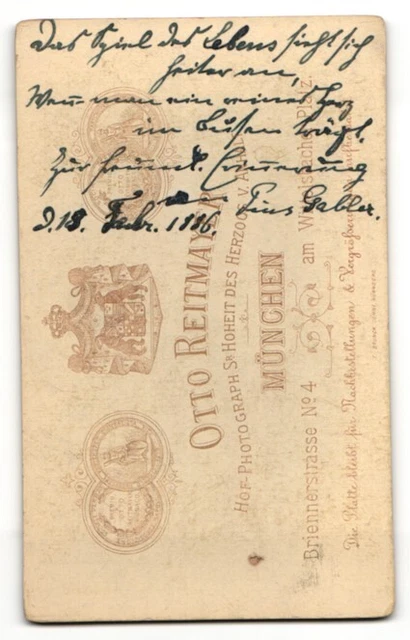 Das Spiel des Lebens sieht sich
heiter an,
Wenn man ein reines Herz
im Busen trägt.
Zur freundl. Erinnerung
Pius Galler.
d. 18. Febr. 1886.
OTTO REITMAYER
HOF-PHOTOGRAPH Sr HOHEIT DES HERZOGS V.
MÜNCHEN
Briennerstrasse No 4 am Wittelsbacher Platz.
Die Platte bleibt für Nachbestellungen & Vergrößerungen